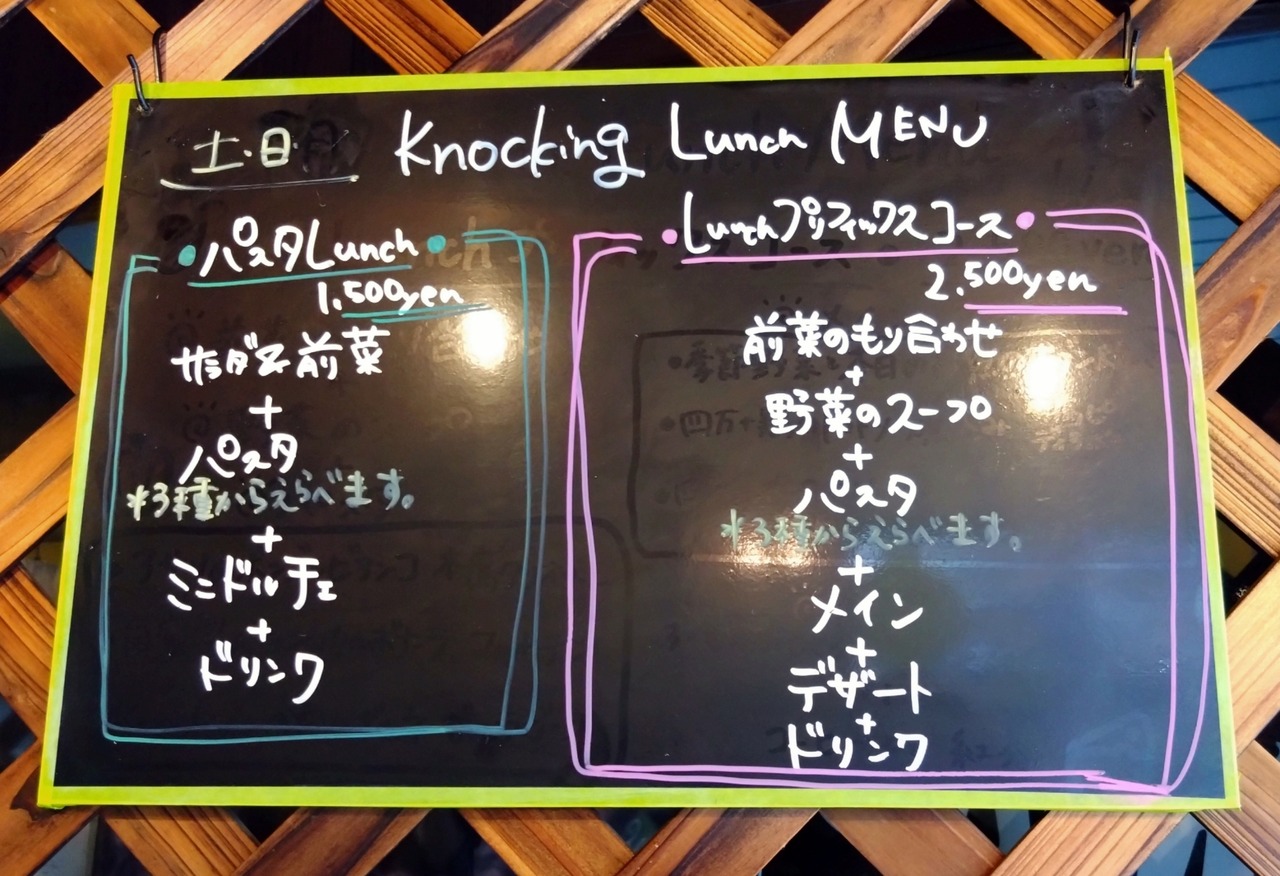 土・日 Knocking Lunch MENU
・パスタLunch・
1.500yen
サラダ&前菜
+
パスタ
*3種からえらべます。
+
ミニドルチェ
+
ドリンク
・Lunchプリフィックスコース・
2.500yen
前菜のもり合わせ
+
野菜のスープ
+
パスタ
*3種からえらべます。
+
メイン
+
デザート
+
ドリンク